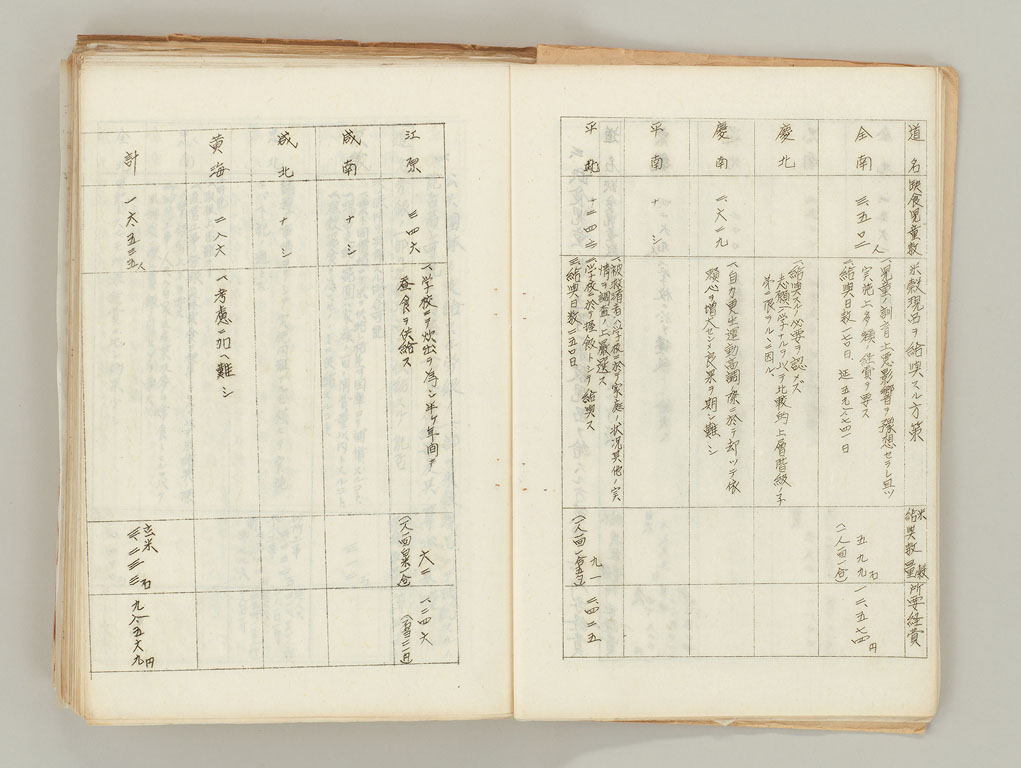 道名
欠食児童数
米穀現品ヲ給與スル方策
米穀給與数量
所要経費
全南
三、五〇二人
一、児童ノ訓育上悪影響ヲ豫想セラレ且ツ
実施上多額ノ経費ヲ要ス
給與日数一七〇日、延五九八、七四一日
五九九石
(一人一回一合)
一三、五七四円
慶北
給與スルノ必要ヲ認メズ
慶南
一、六二九
一、自力更生運動高調ノ際ニ於テ却ツテ依
頼心ヲ増大セシメ良果ヲ期シ難シ
平南
ナシ
平北
一、被救済者ハ学校ニ於テ家庭ノ状況其他ノ実
情ヲ調査ノ上厳選ス
二、学校ニ於テ握飯トシテ給與ス
三、給與日数二五〇日
九一
二四二五
江原
三四六
一、学校ニテ炊出ヲ為シ半ケ年間ヲ
昼食ヲ供給ス
六二
一、二四六
咸南
ナシ
咸北
ナシ
黄海
二八六
一、考慮ニ加ヘ難シ
計
一六、五三五人
玄米
三、二三三石
九八、五六九円